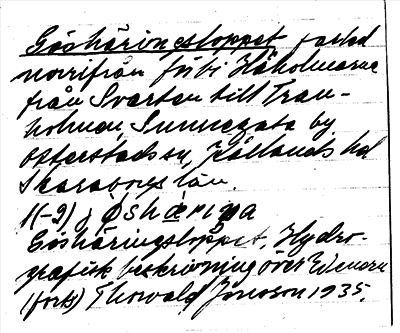 Göshäringsloppet, farled
norrifrån förbi Håholmarna
från Svartan till Tran-
holmen, Sunnegata by
Otterstads sn, Kållands hd
Skaraborgs län.
Göshäringsloppet. Hydro-
grafisk beskrivning över Vänern
(forts) Thorvald Jonsson 1935.